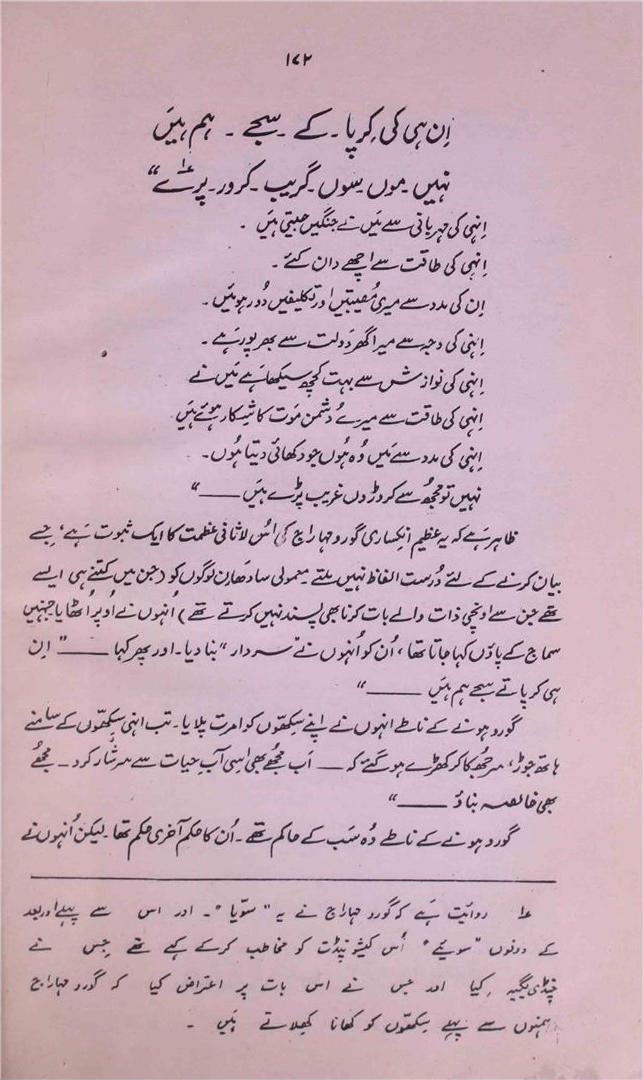 ۱۷۲
اِن ہی کی کِرپا۔ کے۔ سجے۔ ہم ہیں
نہیں۔ موں۔ سوں۔ گریب۔ کرور۔ پرے ؎۱“
اِنہی کی مہربانی سے میں نے جنگیں جیتی ہیں۔
اِنہی کی طاقت سے اچھے دان کئے۔
اِن کی مدد سے میری مُصیبتیں اور تکلیفیں دُور ہوئیں۔
اِنہی کی وجہ سے میرا گھر دَولت سے بھرپور ہے۔
اِنہی کی نوازش سے بہت کچھ سیکھا ہے میں نے
اِنہی کی طاقت سے میرے دُشمن مَوت کا شِکار ہوئے ہیں
اِنہی کی مدد سے میں وُہ ہُوں جو دکھائی دیتا ہُوں۔
نہیں تو مُجھ سے کروڑوں غریب پڑے ہیں ——“
ظاہر ہے کہ یہ عظیم اِنکساری گورو مہاراج کی اُس لاثانی عظمت کا ایک ثبوت ہے، جسے
بیان کرنے کے لئے دُرست الفاظ نہیں ملتے معمولی سادھان لوگوں کو (جن میں کتنے ہی ایسے
تھے جن سے اُونچی ذات والے بات کرنا بھی پسند نہیں کرتے تھے) اُنہوں نے اُوپر اُٹھایا جنہیں
سماج کے پاؤں کہا جاتا تھا، اُن کو اُنہوں نے ”سردار“ بنا دیا۔ اور پھر کہا —— ”اِن
ہی کرپا تے سجے ہم ہیں ——“
گورو ہونے کے ناطے انہوں نے اپنے سِکھوں کو امرت پلایا۔ تب انہی سِکھوں کے سامنے
ہاتھ جوڑ، سر جُھکا کر کھڑے ہو گئے کہ — اَب مُجھے بھی اِسی آبِ حیات سے سرشار کرو۔ مُجھے
بھی خالصہ بناؤ ——“
گورو ہونے کے ناطے وُہ سَب کے حاکم تھے۔ اُن کا حکم آخری حکم تھا۔ لیکن اُنہوں نے
؎۱ روائیت ہے کہ گورو مہاراج نے یہ ”سوّیا“۔ اور اس سے پہلے اور بعد
کے دونوں ”سوئیے“ اُس کیشو پنڈت کو مخاطب کرکے کہے تھے جِس نے
چنڈی یگیہ کِیا اور جس نے اس بات پر اعتراض کیا کہ گورو مہاراج
برہمنوں سے پہلے سِکھوں کو کھانا کِھلاتے ہیں۔